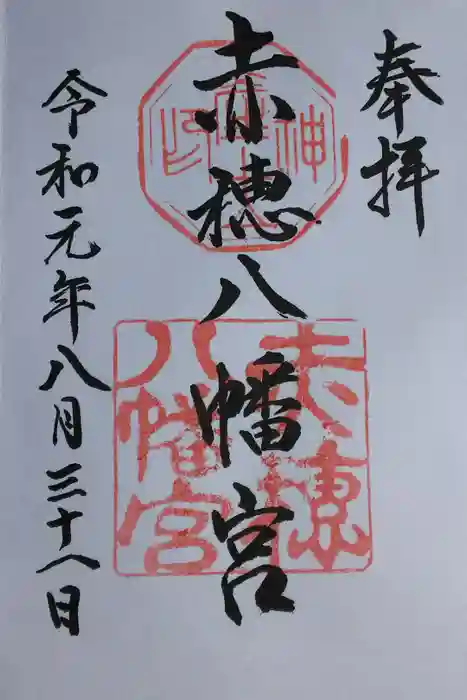 奉拝
赤穂八幡宮
令和元年八月三十八日
赤穂
八幡宮
神
印